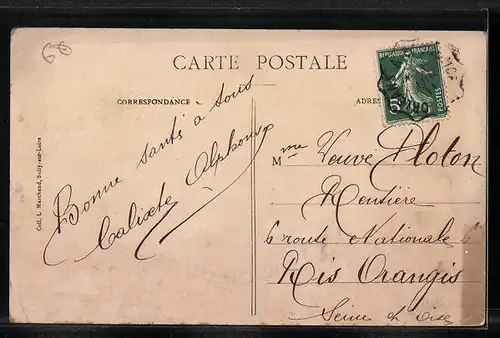 60
CARTE POSTALE
CORRESPONDANCE
ADRES
REPUBLIQUE FRANÇAISE
5
POSTES
Coll. L. Marchand, Sully-sur-Loire
Bonne santé à tous
Calixte Alphonse
Mme Veuve Ploton
Rentière
6 route Nationale 6
Ris Orangis
Seine et Oise